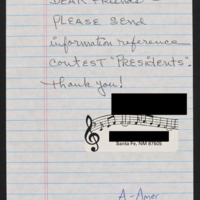 DEAR Friends –
PLEASE Send
information reference
contest "Presidents".
Thank you!
Santa Fe, NM 87505